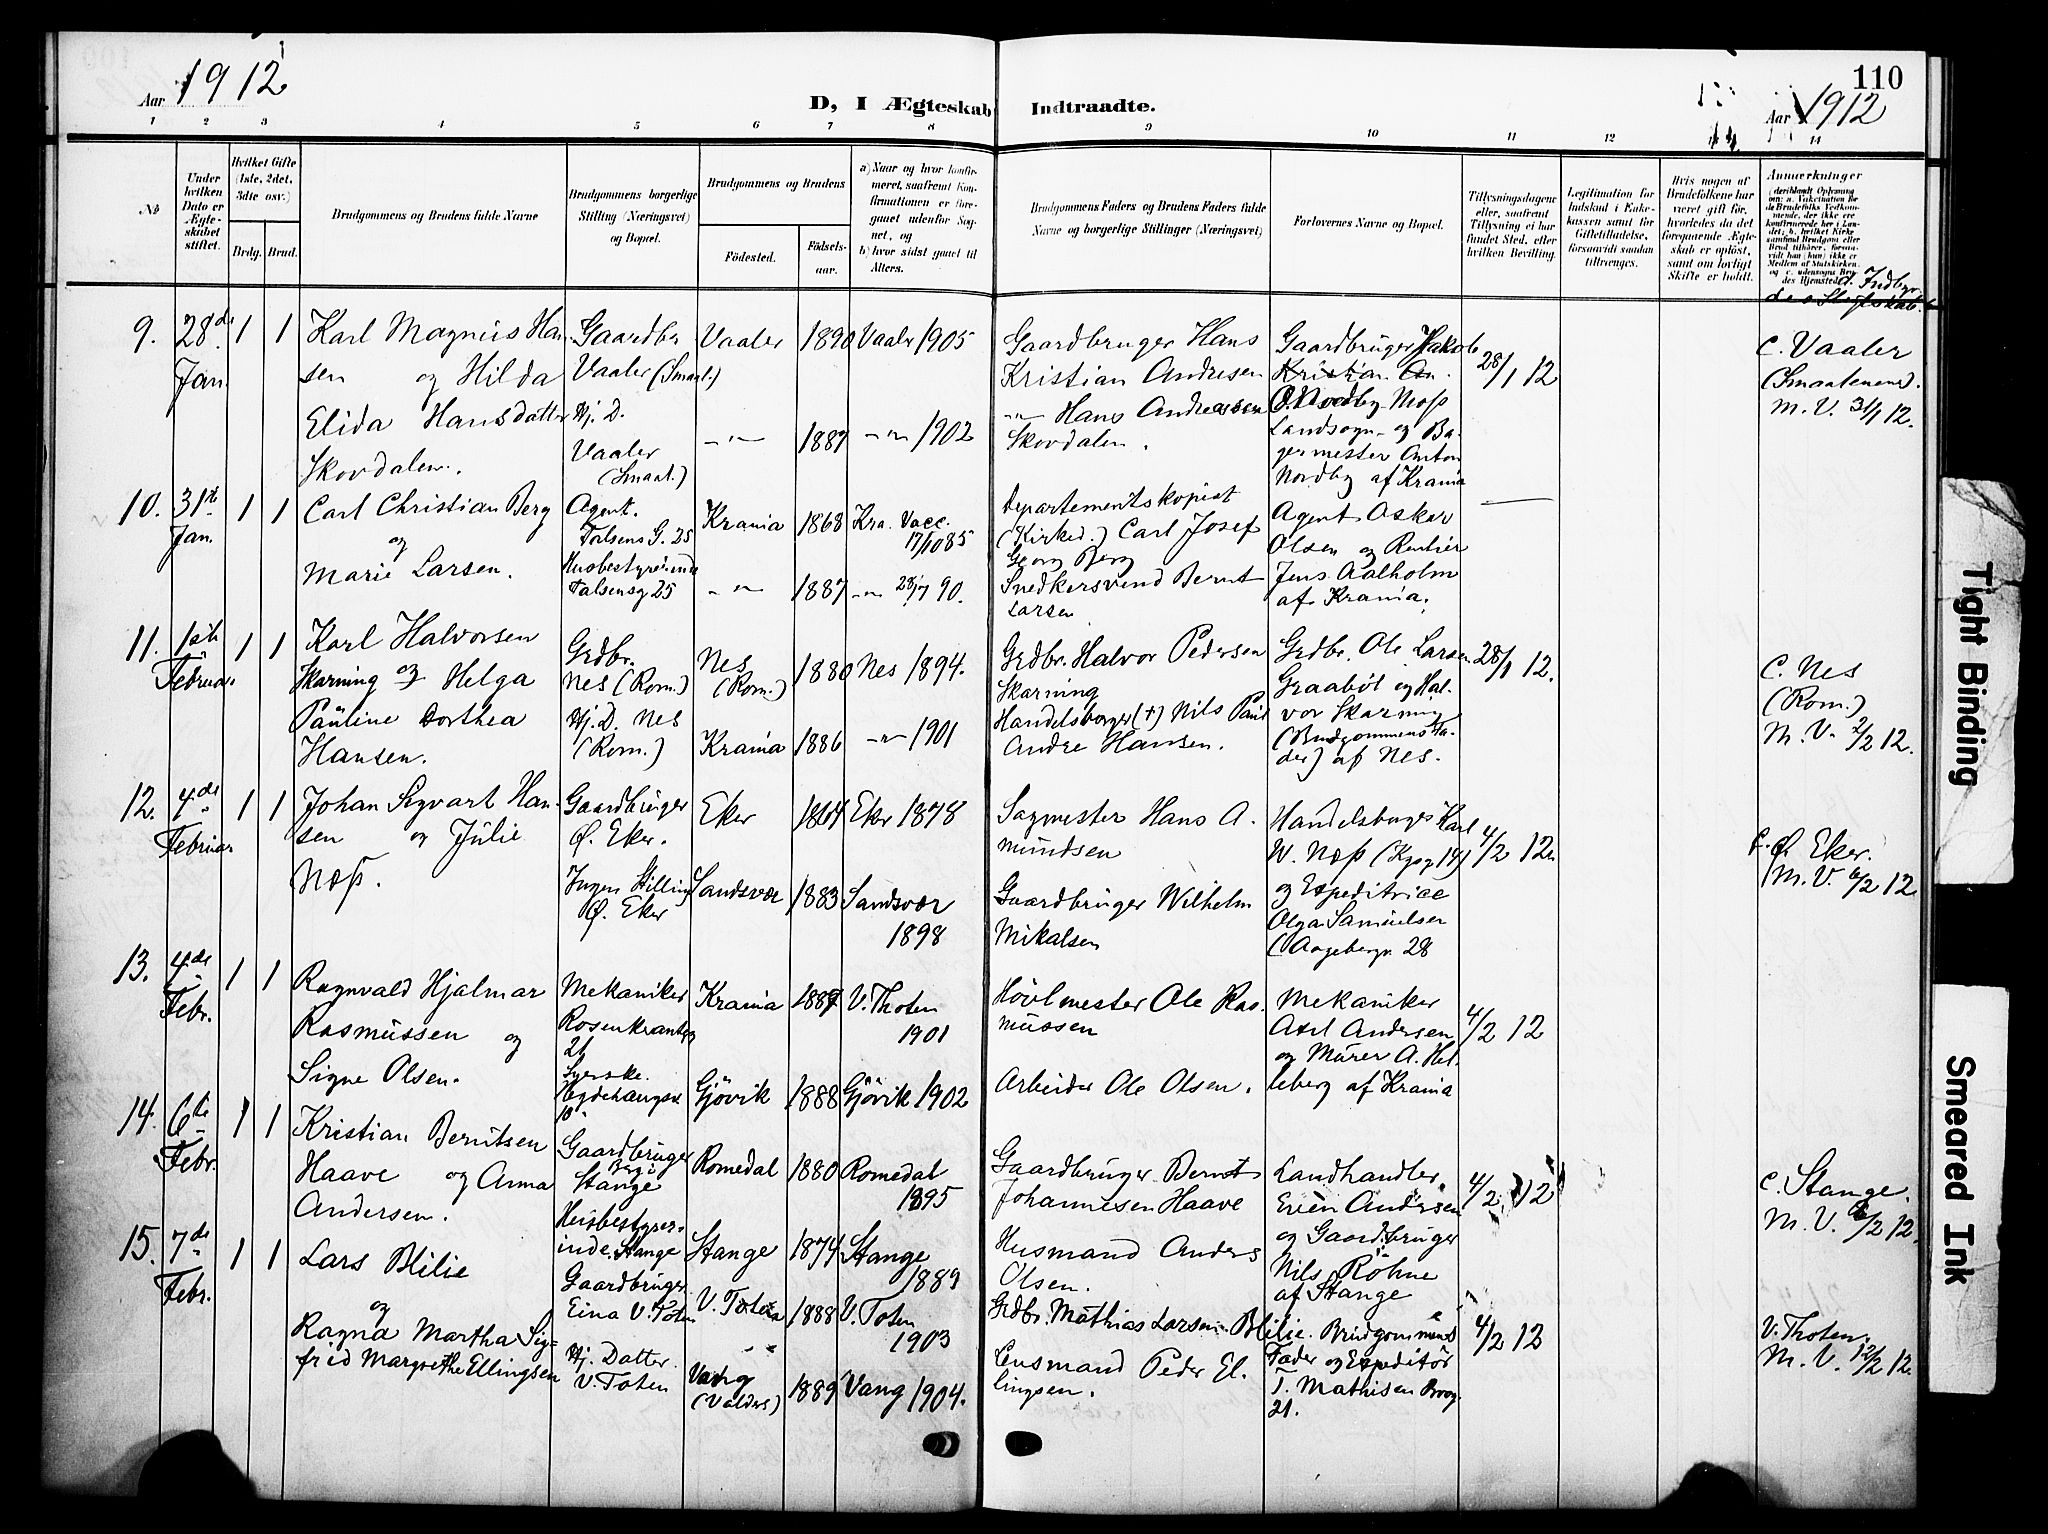 110
Aar 1912
D, I Ægteskab Indtraadte.
Aar 1912
1 2 3 4 5 6 7 8 9 10 11 12 14
No
Under hvilken Dato er Ægteskabet stiftet.
Hvilket Gifte (1ste, 2det, 3die osv.)
Brdg. Brud.
Brudgommens og Brudens fulde Navne
Brudgommens borgerlige Stilling (Næringsvei) og Bopæl.
Brudgommens og Brudens
Födested.
Födsels-aar.
a) Naar og hvor konfirmeret, saafremt Konfirmationen er foregaaet udenfor Sognet, og
b) hvor sidst gaaet til Alters.
Brudgommens Faders og Brudens Faders fulde Navne og borgerlige Stillinger (Næringsvei)
Forlovernes Navne og Bopæl.
Tillysningsdagene eller, saafremt Tillysning ei har fundet Sted, efter hvilken Bevilling.
Legitimation for Indskud i Enkekassen samt for Giftetilladelse, forsaavidt saadan tiltrænges.
Hvis nogen af Brudefolkene har været gift før, hvorledes da det foregaaende Ægteskab er oplöst, samt om lovligt Skifte er holdt.
Anmærkninger
9. 28de Jan. 1 1
Karl Magnus Han-
sen og Hilda
Elida Hansdatter
Skovdalen.
Gaardbr
Vaaler (Smaal.)
Hj. D.
Vaaler
(Smaal.)
Vaaler 1890 Vaaler 1905
-"- 1887 -"- 1902
Gaardbruger Hans
Kristian Andresen
-"- Hans Andreassen
Skovdalen.
Gaardbruger Jakob
Kristian An.
O. Nordby Moss
Landsogn- og Ba-
germester Anton
Nordby af Krania
28/1 12
c. Vaaler
(Smaalenene).
M. V. 31/1 12.
10. 31te Jan. 1 1
Carl Christian Berg
og
Marie Larsen.
Agent.
Falsens G. 25
Husbestyrerinde
Falsensg 25
Krania 1868 Kra. Vacc.
17/10 85
-"- 1887 -"- 90.
Departementskopist
(Kirked.) Carl Josef
Georg Berg
Snedkersvend Bernt
Larsen
Agent Oskar
Olsen og Rentier
Jens Aalholm
af Krania.
11. 1ste Februar. 1 1
Karl Halvorsen
Skarning og Helga
Pauline Dorthea
Hansen.
Grdbr.
Nes (Rom.)
Hj. D. Nes
(Rom.)
Nes
(Rom.) 1880 Nes 1894.
Krania 1886 -"- 1901
Grdbr. Halvor Pedersen
Skarning
Handelsborger (+) Nils Paul
Andre Hansen.
Grdbr. Ole Larsen
Graabøl og Hal-
vor Skarning
(Brudgommens Fa-
der) af Nes.
28/1 12.
c. Nes
(Rom.)
M. V. 2/2 12.
12. 4de Februar 1 1
Johan Sigvart Han-
sen og Julie
Næss.
Gaardbruger
Ø. Eker.
Ingen Stilling
Ø. Eker
Eker 1864 Eker 1878
Sandsvær 1883 Sandsvær
1898
Sagmester Hans A-
mundsen
Gaardbruger Wilhelm
Mikalsen
Handelsborger Karl
W. Næss
og Expeditrice
Olga Samuelsen
28
4/2 12.
c. Ø. Eker.
M. V. 6/2 12.
13. 4de Febr. 1 1
Ragnvald Hjalmar
Rasmussen og
Signe Olsen.
Mekaniker
Rosenkrantzg
21
Syerske.
10.
Krania 1887 V. Thoten
1901
Gjøvik 1888 Gjøvik 1902
Høvlmester Ole Ras-
mussen
Arbeider Ole Olsen.
Mekaniker
Axel Andersen
og Murer A. Hel-
leberg af Krania
4/2 12
14. 6te Febr. 1 1
Kristian Berntsen
Haave og Anna
Andersen.
Gaardbruger
Stange
Husbestyrer-
inde. Stange
Romedal 1880 Romedal
1895
Stange 1874 Stange
1889
Gaardbruger Bernt
Johannesen Haave
Husmand Anders
Olsen.
Landhandler
Even Andersen
og Gaardbruger
Nils Röhne
af Stange
4/2 12
c. Stange.
M. V. 6/2 12.
15. 7de Febr. 1 1
Lars Blilie
og
Ragna Martha Sig-
frid Margrethe Ellingsen
Gaardbruger
Eina V. Toten
Hj. Datter
V. Toten
V. Toten 1888 V. Toten
1903
Vang
(Valders) 1889 Vang 1904.
Grdbr. Mathias Larsen Blilie.
Lensmand Peder El-
lingsen.
Brudgommens
Fader og Expeditør
T. Mathisen
21.
4/2 12
V. Thoten.
M. V. 12/2 12.
Tight Binding
Smeared Ink